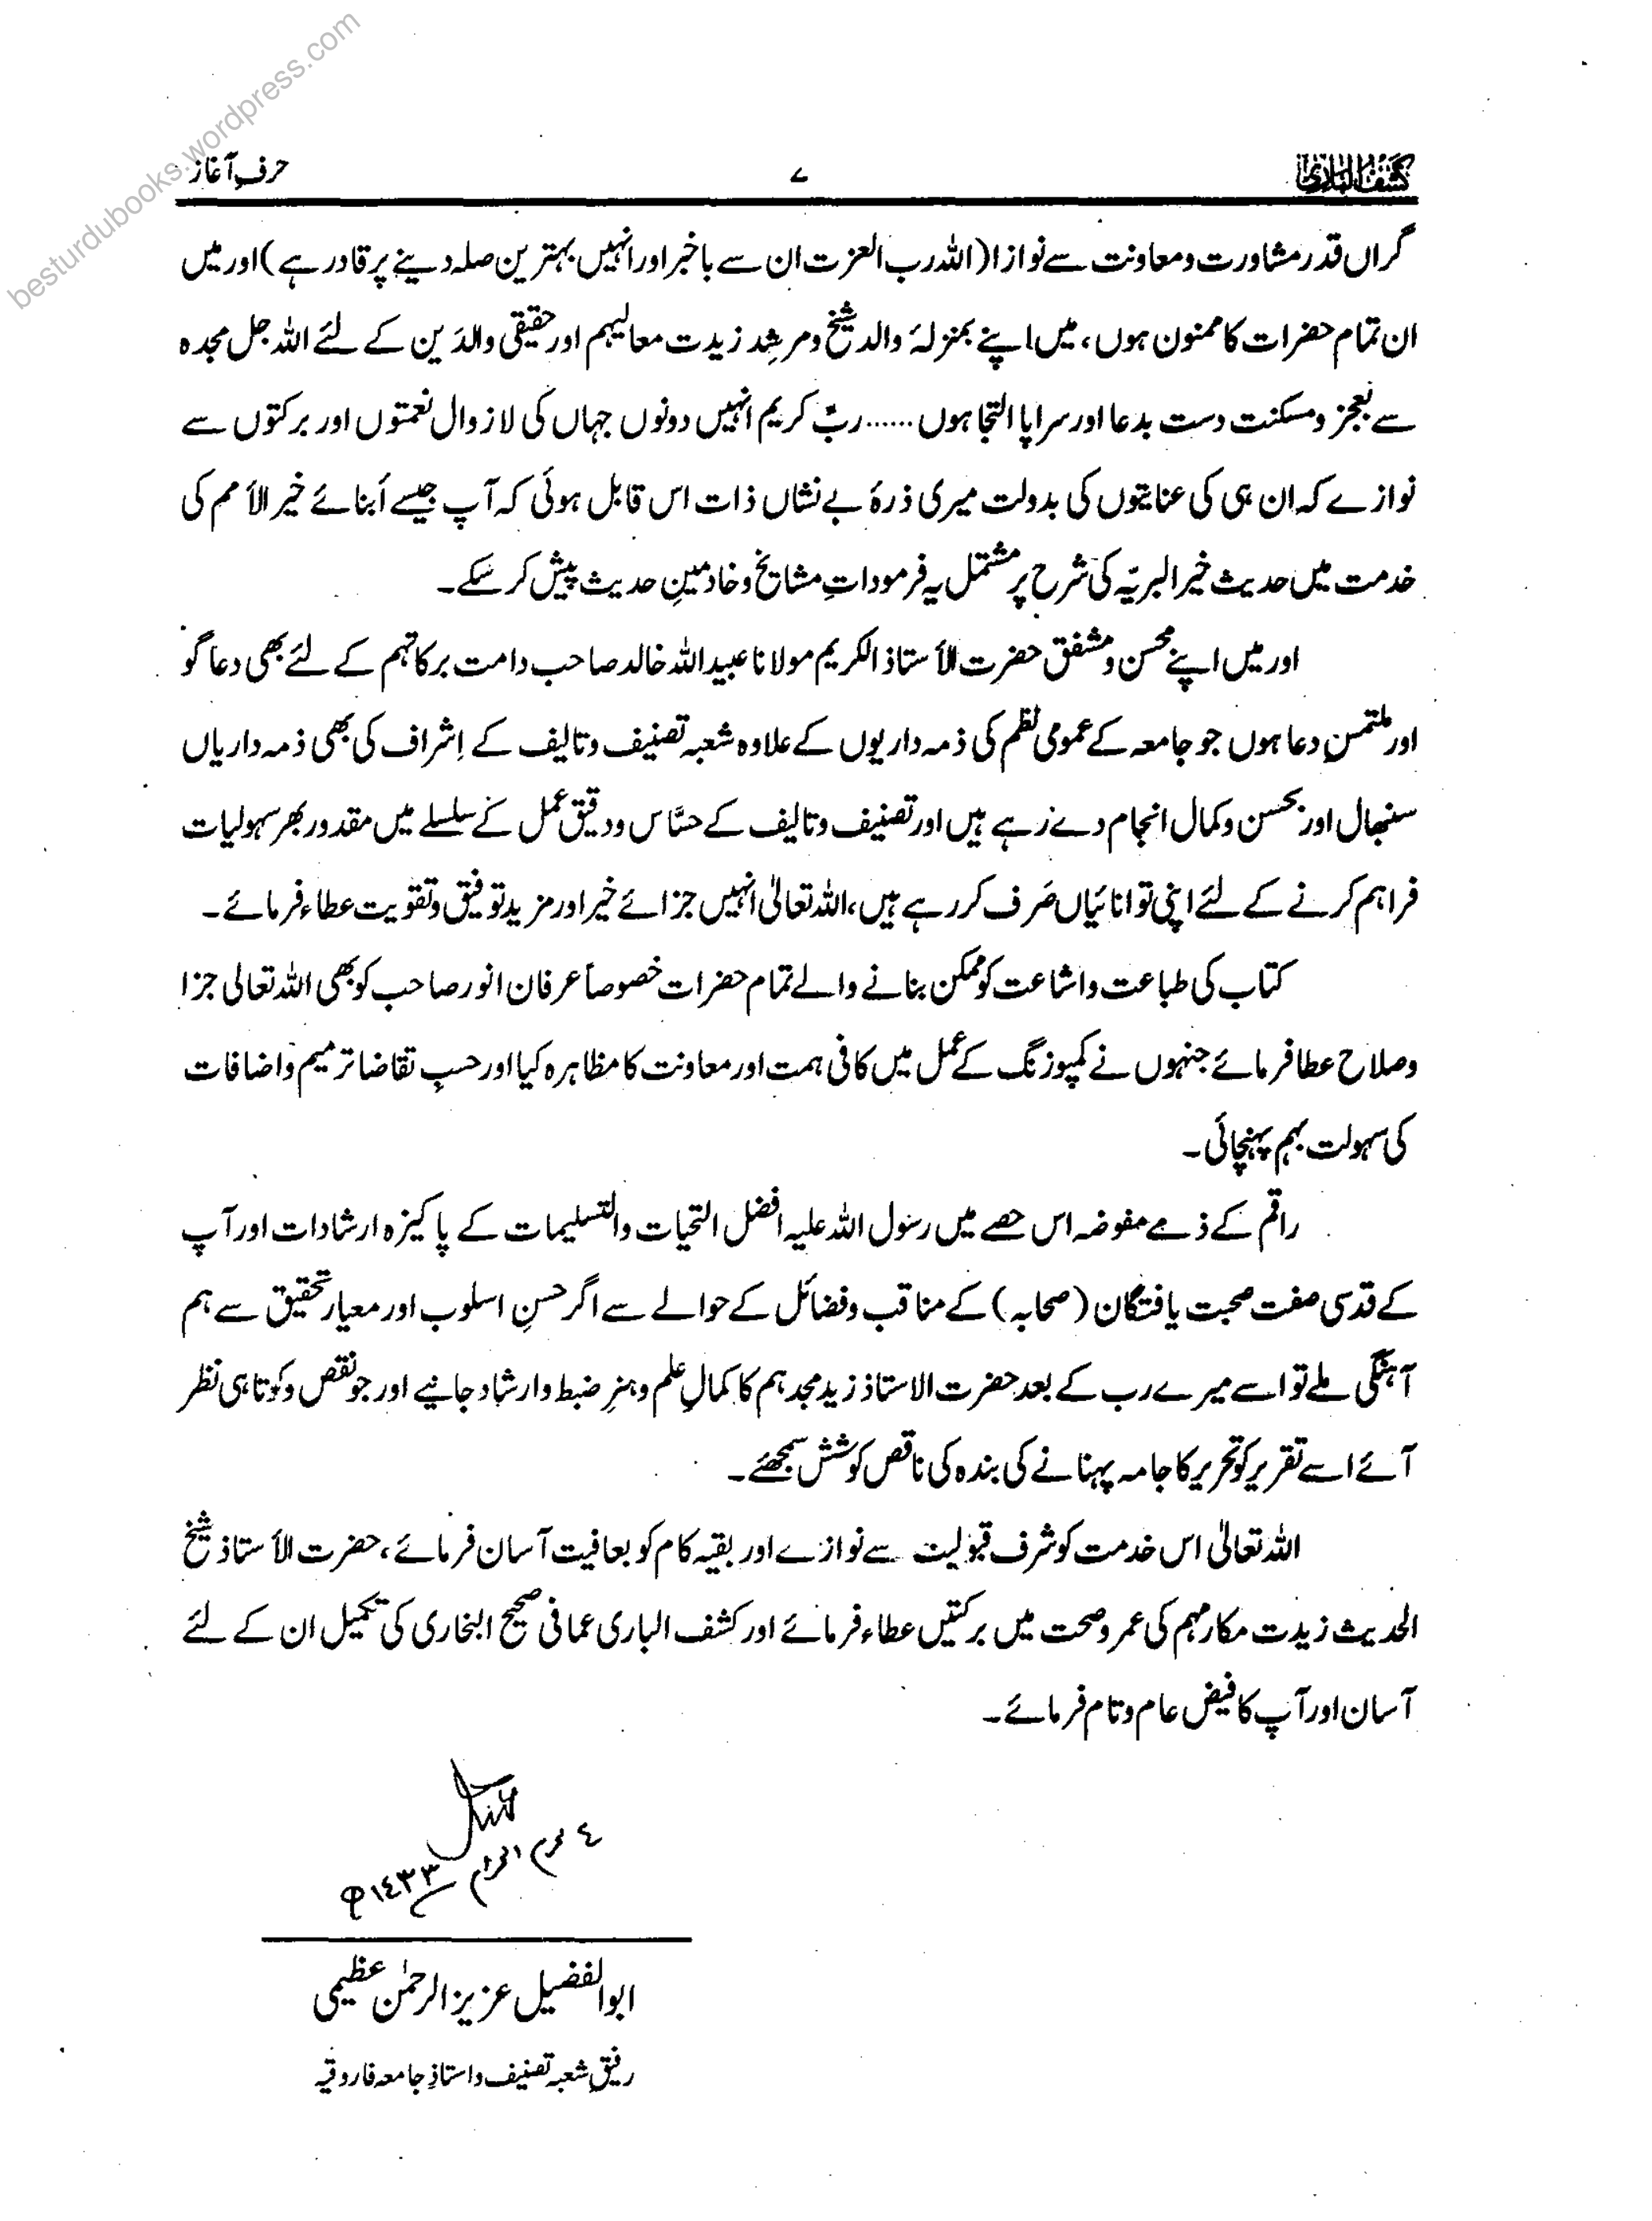 besturdubooks.wordpress.com
کشف الباری ۷ حرفِ آغاز
گراں قدر مشاورت ومعاونت سے نوازا (اللہ رب العزت ان سے باخبر اور انہیں بہترین صلہ دینے پر قادر ہے) اور میں
ان تمام حضرات کا ممنون ہوں، میں اپنے بمنزلۂ والد شیخ ومرشِد زیدت معالیہم اور حقیقی والدَین کے لئے اللہ جل مجدہ
سے بعجز ومسکنت دست بدعا اور سراپا التجا ہوں ...... ربّ کریم انہیں دونوں جہاں کی لازوال نعمتوں اور برکتوں سے
نوازے کہ ان ہی کی عنایتوں کی بدولت میری ذرۂ بے نشاں ذات اس قابل ہوئی کہ آپ جیسے أبنائے خیر الأمم کی
خدمت میں حدیث خیر البریّہ کی شرح پر مشتمل یہ فرموداتِ مشایخ وخادمینِ حدیث پیش کر سکے۔
اور میں اپنے محسن ومشفق حضرت الأستاذ الکریم مولانا عبیداللہ خالد صاحب دامت برکاتہم کے لئے بھی دعا گو
اور ملتمسِ دعا ہوں جو جامعہ کے عمومی نظم کی ذمہ داریوں کے علاوہ شعبہ تصنیف وتالیف کے اِشراف کی بھی ذمہ داریاں
سنبھال اور بحسن وکمال انجام دے رہے ہیں اور تصنیف وتالیف کے حسّاس ودقیق عمل کے سلسلے میں مقدور بھر سہولیات
فراہم کرنے کے لئے اپنی توانائیاں صَرف کر رہے ہیں، اللہ تعالیٰ انہیں جزائے خیر اور مزید توفیق وتقویت عطاء فرمائے۔
کتاب کی طباعت واشاعت کو ممکن بنانے والے تمام حضرات خصوصاً عرفان انور صاحب کو بھی اللہ تعالی جزا
وصلاح عطا فرمائے جنہوں نے کمپوزنگ کے عمل میں کافی ہمت اور معاونت کا مظاہرہ کیا اور حسبِ تقاضا ترمیم واضافات
کی سہولت بہم پہنچائی۔
راقم کے ذمے مفوضہ اس حصے میں رسول اللہ علیہ افضل التحیات والتسلیمات کے پاکیزہ ارشادات اور آپ
کے قدسی صفت صحبت یافتگان (صحابہ) کے مناقب وفضائل کے حوالے سے اگر حسنِ اسلوب اور معیار تحقیق سے ہم
آہنگی ملے تو اسے میرے رب کے بعد حضرت الاستاذ زید مجدہم کا کمالِ علم وہنرِ ضبط وارشاد جانیے اور جو نقص وکوتاہی نظر
آئے اسے تقریر کو تحریر کا جامہ پہنانے کی بندہ کی ناقص کوشش سمجھئے۔
اللہ تعالیٰ اس خدمت کو شرف قبولیت سے نوازے اور بقیہ کام کو بعافیت آسان فرمائے، حضرت الأستاذ شیخ
الحدیث زیدت مکارمہم کی عمر وصحت میں برکتیں عطاء فرمائے اور کشف الباری عمافی صحیح البخاری کی تکمیل ان کے لئے
آسان اور آپ کا فیض عام وتام فرمائے۔
٤ محرم الحرام ١٤٣٣ھ
ابوالفضیل عزیز الرحمٰن عظیمی
رفیقِ شعبہ تصنیف واستاذِ جامعہ فاروقیہ